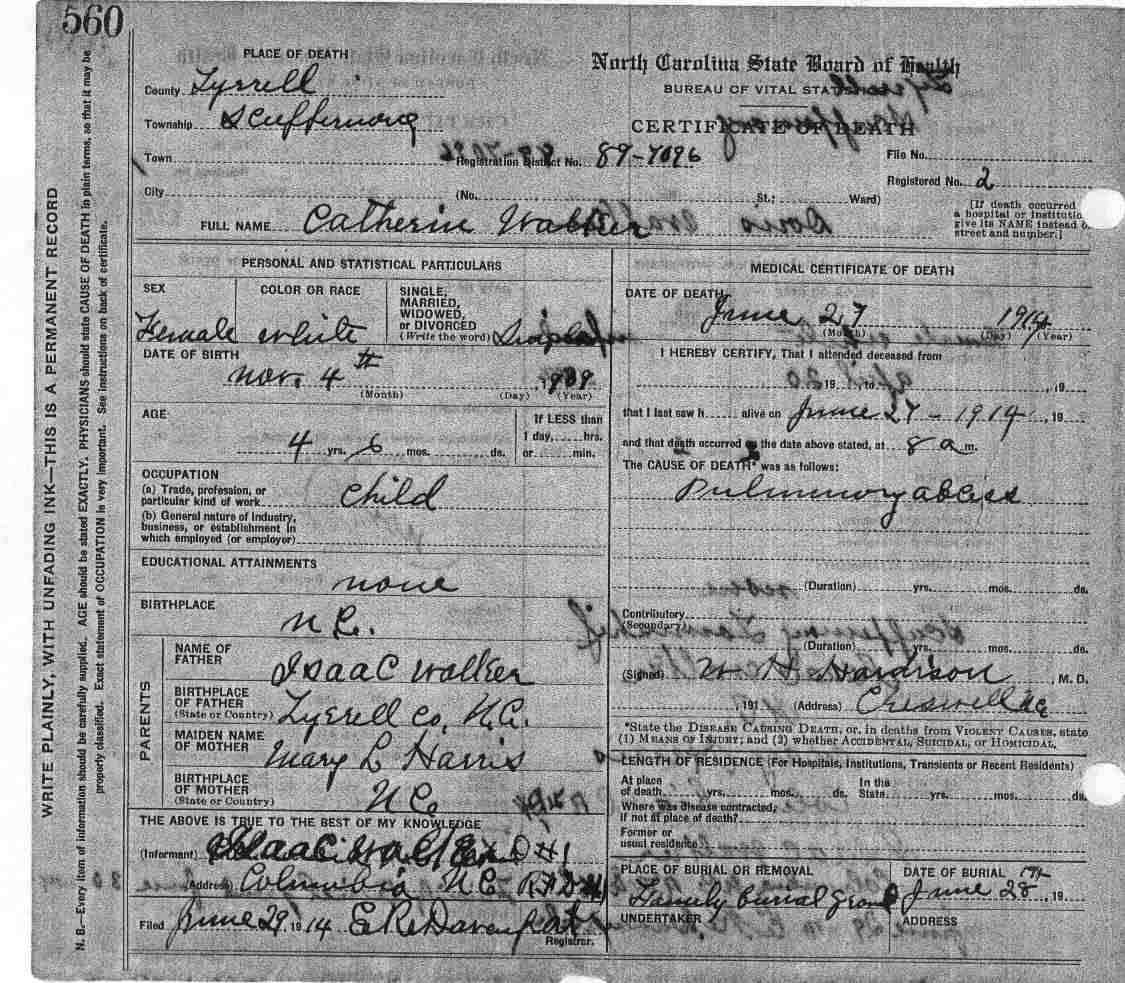 560
PLACE OF DEATH
County Tyrrell
Township Scuppernong
Town
Registration District No. 89-7096
City (No. St.; Ward)
FULL NAME Catherin Walker
North Carolina State Board of Health
BUREAU OF VITAL STAT
CERTIFICATE OF DEATH
File No.
Registered No. 2
[If death occurred
a hospital or institutio
give its NAME instead o
street and number.]
PERSONAL AND STATISTICAL PARTICULARS
SEX
Female
COLOR OR RACE
White
SINGLE,
MARRIED,
WIDOWED,
or DIVORCED
(Write the word) Single
DATE OF BIRTH
Nov. 4th 1909
(Month) (Day) (Year)
AGE
4 yrs. 6 mos. ds.
If LESS than
1 day, hrs.
or min.
OCCUPATION
(a) Trade, profession, or
particular kind of work Child
(b) General nature of industry,
business, or establishment in
which employed (or employer)
EDUCATIONAL ATTAINMENTS
none
BIRTHPLACE
N C.
PARENTS
NAME OF
FATHER
Isaac Walker
BIRTHPLACE
OF FATHER
(State or Country) Tyrrell Co, N.C.
MAIDEN NAME
OF MOTHER
Mary L Harris
BIRTHPLACE
OF MOTHER
(State or Country) N C.
THE ABOVE IS TRUE TO THE BEST OF MY KNOWLEDGE
(Informant) Isaac Walker
(Address) Columbia N.C.
Filed June 29, 1914 E R Davenport
Registrar.
MEDICAL CERTIFICATE OF DEATH
DATE OF DEATH
June 27 1914
(Month) (Day) (Year)
I HEREBY CERTIFY, That I attended deceased from
April 20 19 to , 19
that I last saw h alive on June 27 - 1914, 19
and that death occurred on the date above stated, at 8 a m.
The CAUSE OF DEATH* was as follows:
Pulmonary abcess
(Duration) yrs. mos. ds.
Contributory
(Secondary)
(Duration) yrs. mos. ds.
(Signed) W H Hardison, M. D.
, 191 (Address) Creswell NC
*State the DISEASE CAUSING DEATH, or, in deaths from VIOLENT CAUSES, state
(1) MEANS OF INJURY; and (2) whether ACCIDENTAL, SUICIDAL, or HOMICIDAL.
LENGTH OF RESIDENCE (For Hospitals, Institutions, Transients or Recent Residents)
At place
of death yrs. mos. ds.
In the
State yrs. mos. ds.
Where was disease contracted,
if not at place of death?
Former or
usual residence
PLACE OF BURIAL OR REMOVAL
Family burial ground
DATE OF BURIAL
June 28, 19
UNDERTAKER
ADDRESS
WRITE PLAINLY, WITH UNFADING INK—THIS IS A PERMANENT RECORD
N. B.—Every item of information should be carefully supplied. AGE should be stated EXACTLY. PHYSICIANS should state CAUSE OF DEATH in plain terms, so that it may be
properly classified. Exact statement of OCCUPATION is very important. See instructions on back of certificate.